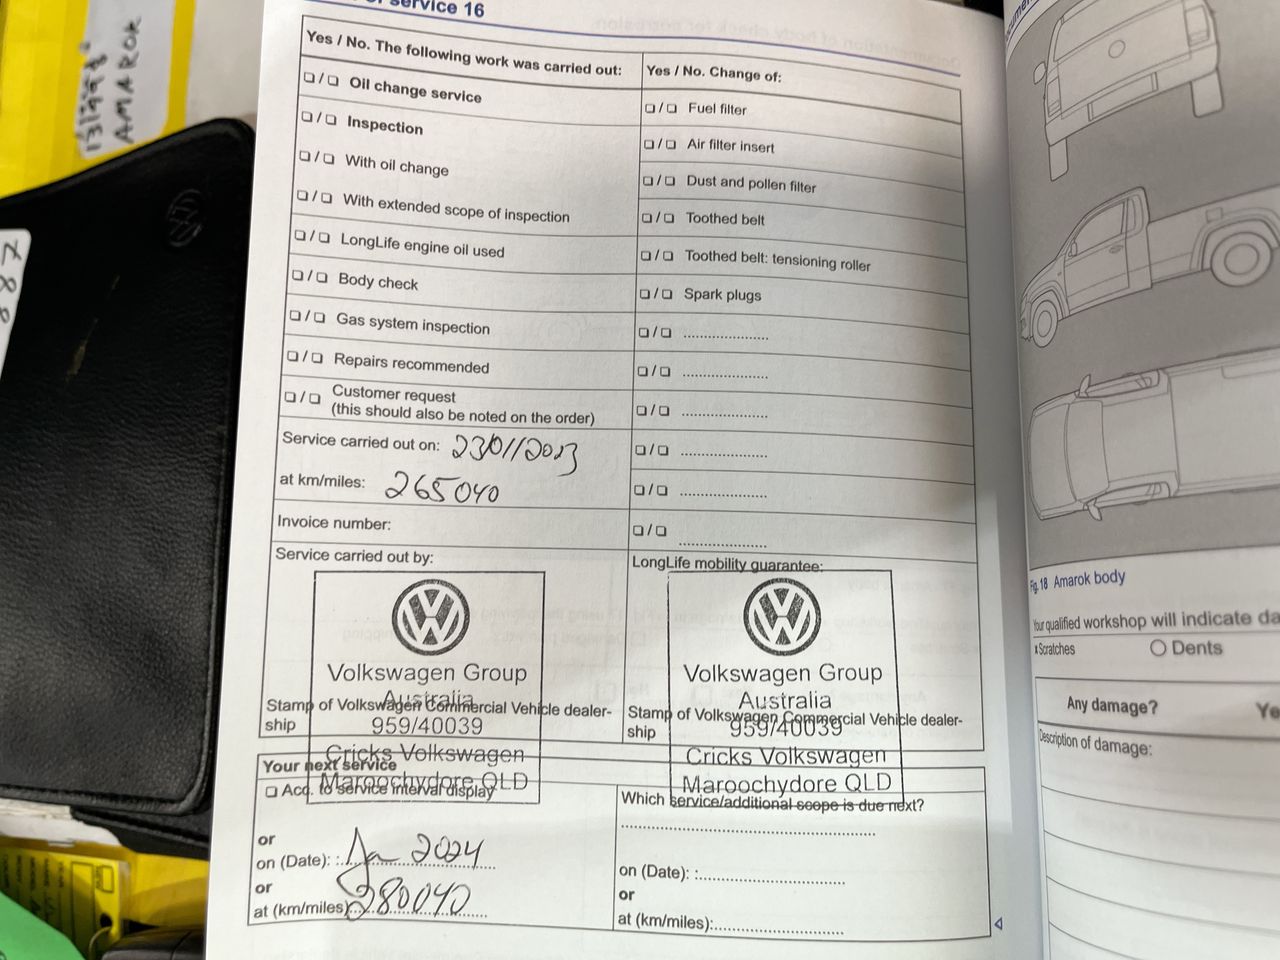 of service 16
Yes / No. The following work was carried out:
❏ / ❏ Oil change service
❏ / ❏ Inspection
❏ / ❏ With oil change
❏ / ❏ With extended scope of inspection
❏ / ❏ LongLife engine oil used
❏ / ❏ Body check
❏ / ❏ Gas system inspection
❏ / ❏ Repairs recommended
❏ / ❏ Customer request
(this should also be noted on the order)
Service carried out on: 23/01/2023
at km/miles: 265040
Invoice number:
Service carried out by:
Volkswagen Group
Australia
959/40039
Cricks Volkswagen
Maroochydore QLD
Stamp of Volkswagen Commercial Vehicle dealer-
ship
Yes / No. Change of:
❏ / ❏ Fuel filter
❏ / ❏ Air filter insert
❏ / ❏ Dust and pollen filter
❏ / ❏ Toothed belt
❏ / ❏ Toothed belt: tensioning roller
❏ / ❏ Spark plugs
❏ / ❏ ....................
❏ / ❏ ....................
❏ / ❏ ....................
❏ / ❏ ....................
❏ / ❏ ....................
❏ / ❏ ....................
LongLife mobility guarantee:
Volkswagen Group
Australia
959/40039
Cricks Volkswagen
Maroochydore QLD
Stamp of Volkswagen Commercial Vehicle dealer-
ship
Your next service
❏ Acc. to service interval display
or
on (Date): : Jan 2024
or
at (km/miles): 280040
Which service/additional scope is due next?
on (Date): :
or
at (km/miles):
Fig. 18 Amarok body
Your qualified workshop will indicate da
x Scratches
O Dents
Any damage?
Ye
Description of damage:
AMAROK
788